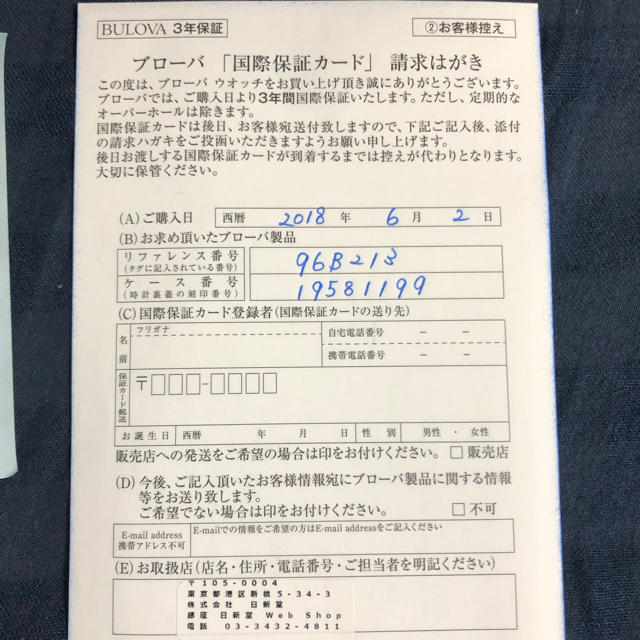 BULOVA 3年保証
②お客様控え
ブローバ 「国際保証カード」 請求はがき
この度は、ブローバ ウオッチをお買い上げ頂き誠にありがとうございます。
ブローバでは、ご購入日より3年間国際保証いたします。ただし、定期的な
オーバーホールは除きます。
国際保証カードは後日、お客様宛送付致しますので、下記ご記入後、添付
の請求ハガキをご投函いただきますようお願い申し上げます。
後日お渡しする国際保証カードが到着するまでは控えが代わりとなります。
大切に保管ください。
(A) ご購入日 西暦 2018 年 6 月 2 日
(B) お求め頂いたブローバ製品
リファレンス番号
(タグに記入されている番号)
96B213
ケース番号
(時計裏蓋の刻印番号)
19581199
(C) 国際保証カード登録者 (国際保証カードの送り先)
フリガナ
名前
自宅電話番号 − −
携帯電話番号 − −
保証カード郵送
〒□□□-□□□□
お誕生日 西暦 年 月 日 性別 男性・女性
販売店への発送をご希望の場合は印をお付けください。 □ 販売店
(D) 今後、ご記入頂いたお客様情報宛にブローバ製品に関する情報
等をお送り致します。
ご希望でない場合は印をお付けください。 □ 不可
E-mail address
携帯アドレス不可
E-mailでの情報をご希望の方はE-mail addressをご記入ください
(E) お取扱店 (店名・住所・電話番号・ご担当者を明記ください)
〒105-0004
東京都港区新橋5-34-3
株式会社 日新堂
銀座 日新堂 Web Shop
電話 03-3432-4811